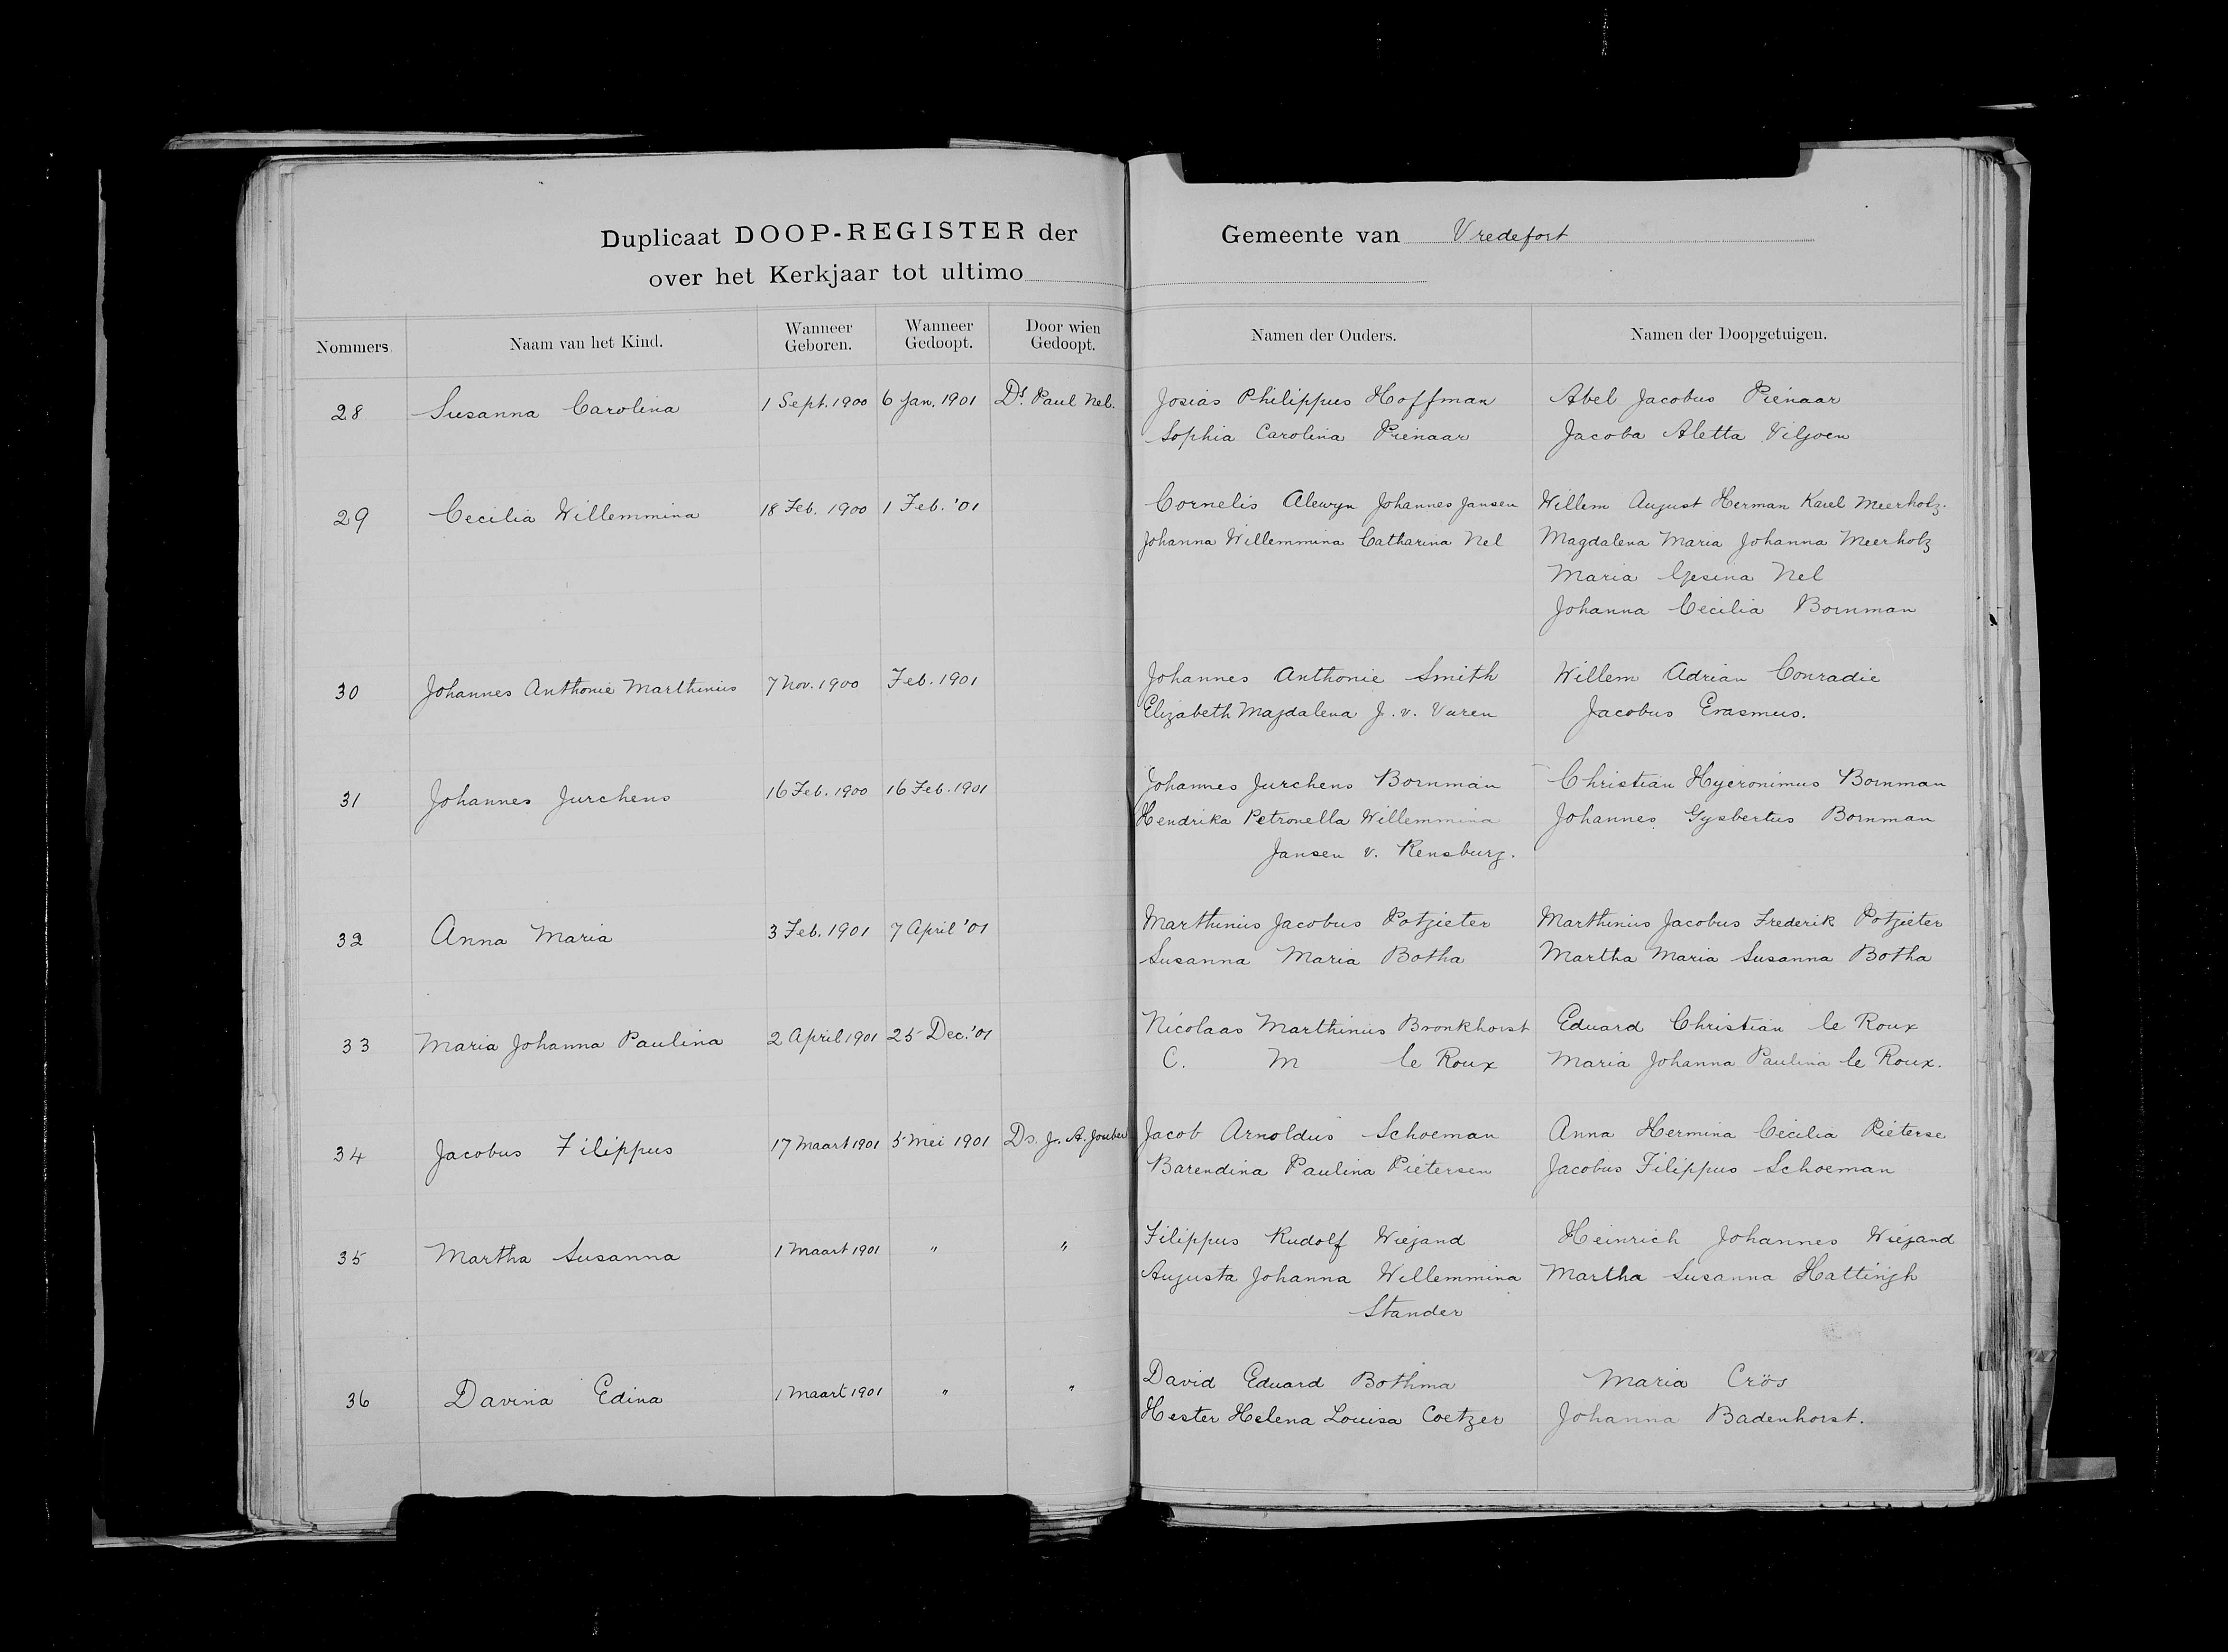 Duplicaat DOOP-REGISTER der Gemeente van Vredefort
over het Kerkjaar tot ultimo
Nommers. Naam van het Kind. Wanneer Geboren. Wanneer Gedoopt. Door wien Gedoopt. Namen der Ouders. Namen der Doopgetuigen.
28 Susanna Carolina 1 Sept. 1900 6 Jan. 1901 Ds. Paul Nel. Josias Philippus Hoffman Abel Jacobus Pienaar
Sophia Carolina Pienaar Jacoba Aletta Viljoen
29 Cecilia Willemmina 18 Feb. 1900 1 Feb. '01 Cornelis Alewyn Johannes Jansen Willem August Herman Karel Meerholz.
Johanna Willemmina Catharina Nel Magdalena Maria Johanna Meerholz
Maria Gesina Nel
Johanna Cecilia Bornman
30 Johannes Anthonie Marthinus 7 Nov. 1900 Feb. 1901 Johannes Anthonie Smith Willem Adrian Conradie
Elizabeth Magdalena J. v. Vuren Jacobus Erasmus.
31 Johannes Jurchens 16 Feb. 1900 16 Feb. 1901 Johannes Jurchens Bornman Christian Hyeronimus Bornman
Hendrika Petronella Willemmina Johannes Gysbertus Bornman
Jansen v. Rensburg.
32 Anna Maria 3 Feb. 1901 7 April '01 Marthinus Jacobus Potgieter Marthinus Jacobus Frederik Potgieter
Susanna Maria Botha Martha Maria Susanna Botha
33 Maria Johanna Paulina 2 April 1901 25 Dec. '01 Nicolaas Marthinus Bronkhorst Eduard Christian le Roux
C. M le Roux Maria Johanna Paulina le Roux.
34 Jacobus Filippus 17 Maart 1901 5 Mei 1901 Ds. J. A. Jouber Jacob Arnoldus Schoeman Anna Hermina Cecilia Pieterse
Barendina Paulina Pietersen Jacobus Filippus Schoeman
35 Martha Susanna 1 Maart 1901 " " Filippus Rudolf Wiegand Heinrich Johannes Wiegand
Augusta Johanna Willemmina Martha Susanna Hattingh
Stander
36 Davina Edina 1 Maart 1901 " " David Eduard Bothma Maria Crös
Hester Helena Louisa Coetzer Johanna Badenhorst.